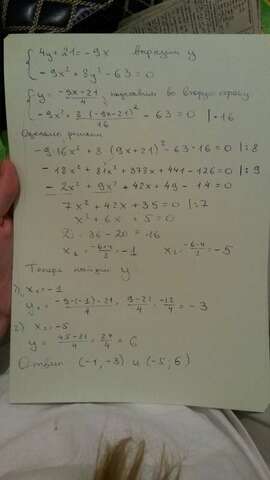 4y + 21 = -9x выразим y
-9x² + 3y² - 63 = 0
y = (-9x-21)/4 подставим во вторую строку
-9x² + 3·(-9x-21)²/16 - 63 = 0 | ·16
Отдельно решим
-9·16x² + 3·(9x+21)² - 63·16 = 0 | :8
- 18x² + 81x² + 378x + 441 - 126 = 0 | :9
- 2x² + 9x² + 42x + 49 - 14 = 0
7x² + 42x + 35 = 0 | :7
x² + 6x + 5 = 0
D = 36 - 20 = 16
x₁ = (-6+4)/2 = -1 x₂ = (-6-4)/2 = -5
Теперь найдём y
1) x₁ = -1
y₁ = (-9·(-1)-21)/4 = (9-21)/4 = -12/4 = -3
2) x₂ = -5
y = (45-21)/4 = 24/4 = 6
Ответ (-1, -3) и (-5; 6)